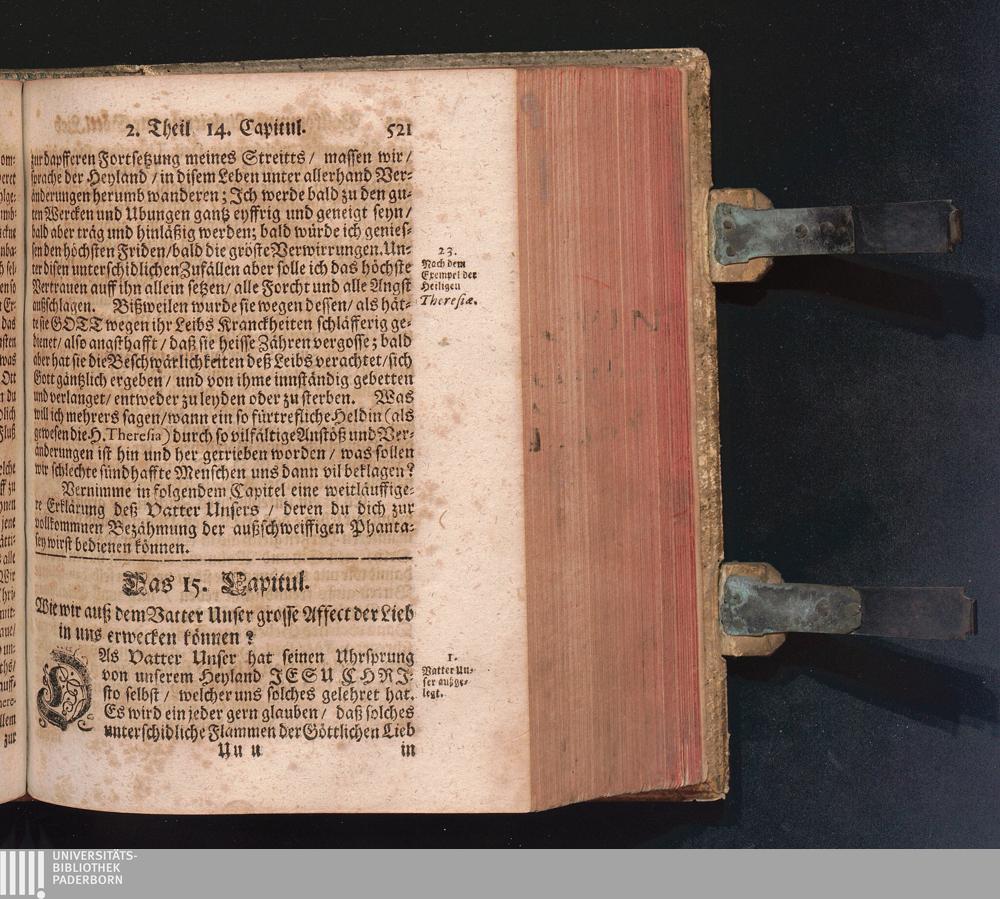 2. Theil 14. Capitul. 521
zur dapfferen Fortsetzung meines Streitts / massen wir /
sprache der Heyland / in disem Leben unter allerhand Ver-
änderungen herumb wanderen; Ich werde bald zu den gu-
ten Wercken und Ubungen gantz eyffrig und geneigt seyn /
bald aber träg und hinläßig werden; bald würde ich genies-
sen den höchsten Friden / bald die gröste Verwirrungen. Un-
ter disen unterschidlichen Zufällen aber solle ich das höchste
Vertrauen auff ihn allein setzen / alle Forcht und alle Angst
außschlagen. Bißweilen wurde sie wegen dessen / als hät-
te sie GOTT wegen ihr Leibs Kranckheiten schläfferig ge-
dienet / also angsthafft / daß sie heisse Zähren vergosse; bald
aber hat sie die Beschwärlichkeiten deß Leibs verachtet / sich
Gott gäntzlich ergeben / und von ihme innständig gebetten
und verlanget / entweder zu leyden oder zu sterben. Was
will ich mehrers sagen / wann ein so fürtrefliche Heldin (als
gewesen die H. Theresia) durch so vilfältige Anstöß und Ver-
änderungen ist hin und her getrieben worden / was sollen
wir schlechte sündhaffte Menschen uns dann vil beklagen?
Vernimme in folgendem Capitel eine weitläuffige-
re Erklärung deß Vatter Unsers / deren du dich zur
vollkommnen Bezähmung der außschweiffigen Phanta-
sey wirst bedienen können.
23.
Nach dem
Exempel der
Heiligen
Theresiæ.
Das 15. Capitul.
Wie wir auß dem Vatter Unser grosse Affect der Lieb
in uns erwecken können?
DAs Vatter Unser hat seinen Uhrsprung
von unserem Heyland JESU CHRI-
sto selbst / welcher uns solches gelehret hat.
Es wird ein jeder gern glauben / daß solches
unterschidliche Flammen der Göttlichen Lieb
Uu u in
1.
Vatter Un-
ser außge-
legt.
UNIVERSITÄTS-
BIBLIOTHEK
PADERBORN